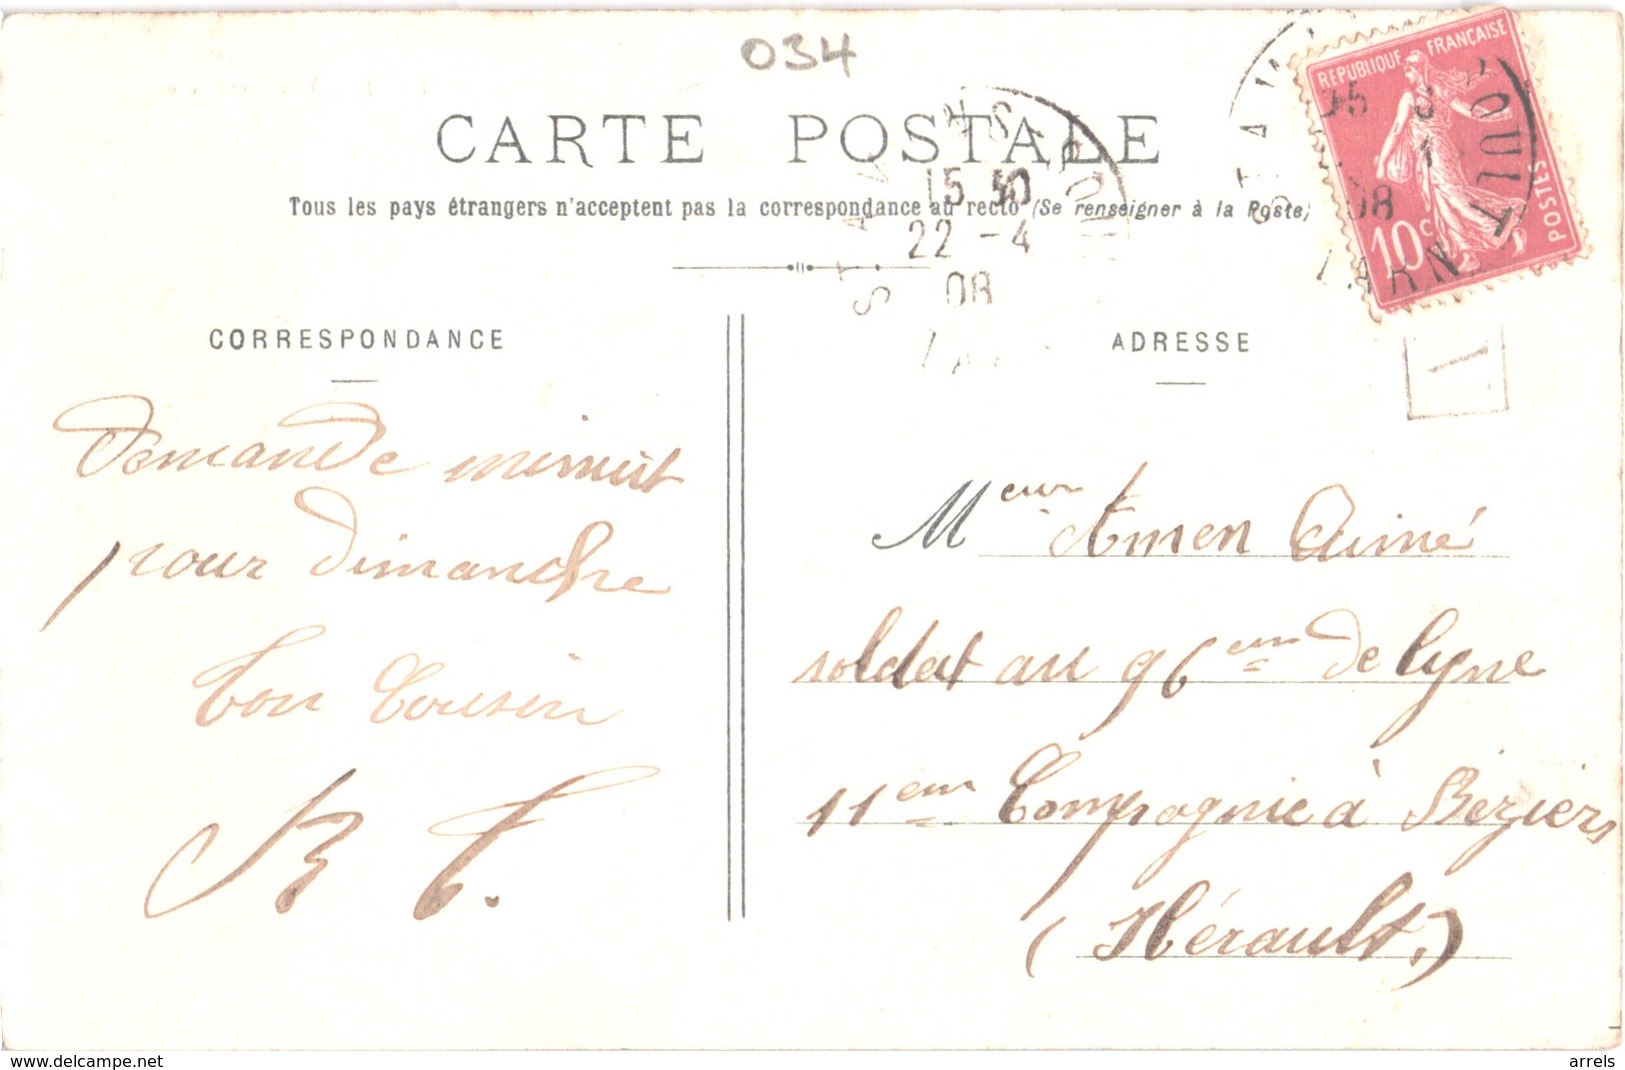 034
CARTE POSTALE
Tous les pays étrangers n'acceptent pas la correspondance au recto (Se renseigner à la Poste)
15 50
22 - 4
08
RÉPUBLIQUE FRANÇAISE
10c
POSTES
08
TARN
CORRESPONDANCE
Demande minuit
pour Dimanche
Ton Cousin
ADRESSE
Meur Amen Aimé
soldat au 96eme de lyne
11eme Compagnie à Béziers
(Hérault.)
delcampe.net
arrels